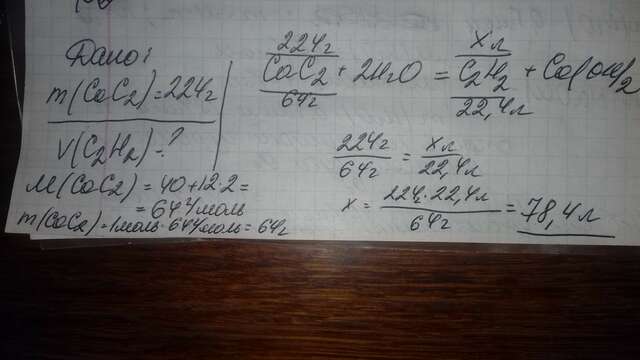 Дано:
m(CaC2)=224г
V(C2H2)-?
M(CaC2)=40+12·2=
=64г/моль
m(CaC2)=1моль·64г/моль=64г
224г xл
CaC2+2H2O=C2H2+Ca(OH)2
64г 22,4л
224г/64г=xл/22,4л
x=224г·22,4л/64г=78,4л